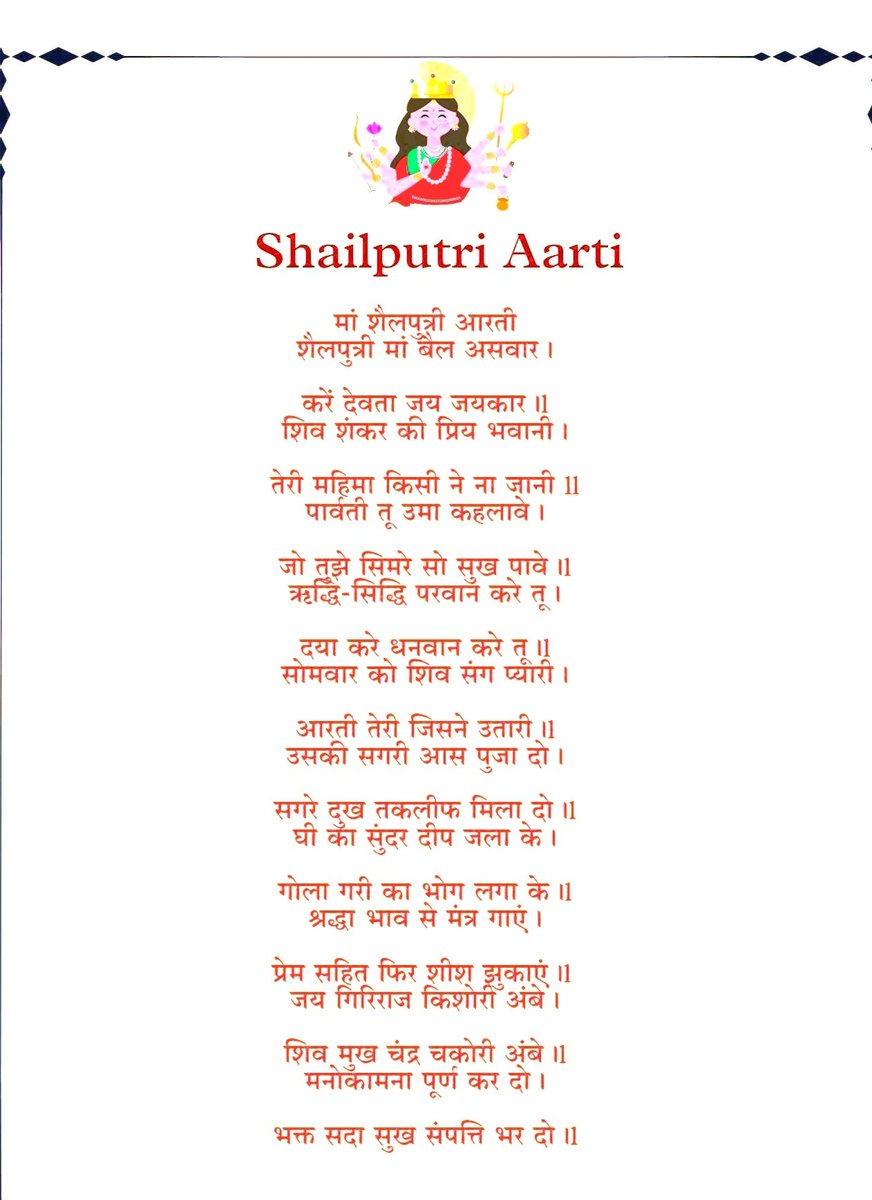 Shailputri Aarti
मां शैलपुत्री आरती
शैलपुत्री मां बैल असवार ।
करें देवता जय जयकार ।1
शिव शंकर की प्रिय भवानी ।
तेरी महिमा किसी ने ना जानी 11
पार्वती तू उमा कहलावे ।
जो तुझे सिमरे सो सुख पावे ।1
ऋद्धि-सिद्धि परवान करे तू ।
दया करे धनवान करे तू ।1
सोमवार को शिव संग प्यारी ।
आरती तेरी जिसने उतारी ।1
उसकी सगरी आस पुजा दो ।
सगरे दुख तकलीफ मिला दो ।1
घी का सुंदर दीप जला के ।
गोला गरी का भोग लगा के ।1
श्रद्धा भाव से मंत्र गाएं ।
प्रेम सहित फिर शीश झुकाएं ।1
जय गिरिराज किशोरी अंबे ।
शिव मुख चंद्र चकोरी अंबे ।1
मनोकामना पूर्ण कर दो ।
भक्त सदा सुख संपत्ति भर दो ।1